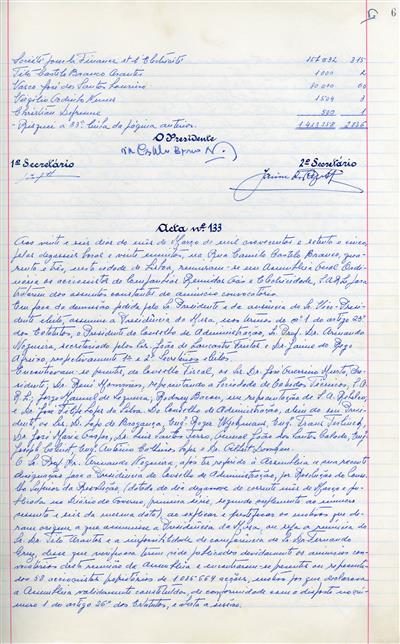 6
Société pour la Finance et l'Electricité 157.832 315
Tito Castelo Branco Arantes 1.000 2
Vasco José dos Santos Loureiro 30.000 60
Virgilio Ordinho Nunes 1504 3
Christian Defrenne 580 1
- Risquei a 33ª linha da página anterior. 1.413.258 2.826
O Presidente
1º Secretário 2º Secretário
Acta nº 133
Aos vinte e seis dias do mês de Março de mil novecentos e setenta e cinco,
pelas dezassete horas e vinte minutos, na Rua Camilo Castelo Branco, qua-
renta e três, nesta cidade de Lisboa, reuniram-se em Assembleia Geral Ordi-
nária os accionistas de Companhias Reunidas Gás e Electricidade, S.A.R.L., para
tratarem dos assuntos constantes do anúncio convocatório.
Em face da demissão pedida pelo Sr. Presidente e da ausência do Sr. Vice-Presi-
dente eleito, assumiu a Presidência da Mesa, nos termos do nº 1 do artigo 23º
dos Estatutos, o Presidente do Conselho de Administração, Sr. Prof. Dr. Armando
Nogueira, secretariado pelos Srs. João de Lancastre Freitas e Dr. Jaime do Rego
Afreixo, respectivamente 1º e 2º Secretários eleitos.
Encontravam-se presentes, do Conselho Fiscal, os Srs. Dr. José Guerreiro Murta, Pre-
sidente; Dr. René Mannrian, representando a Sociedade de Estudos Técnicos, S.A.
R.L.; Jorge Manuel de Siqueira; Rodney Bacon, em representação de S.A. Rotelec,
e Dr. José Filipe Lopes da Silva. Do Conselho de Administração, além do seu Presi-
dente, os Srs. Dr. Lopo de Bragança, Eng. Roger Wybouw, Eng. Franz Tolinck,
Dr. José Maria Crespo, Dr. Luis Santos Ferro, General João dos Santos Calado, Eng.
Joseph Calvet, Eng. António Ectério Lopes e Sr. Albert Donagan.
O Sr. Prof. Dr. Armando Nogueira, após ter referido à Assembleia a sua recente
designação para a Presidência do Conselho de Administração, por Resolução do Conse-
lho Superior da Revolução, (datada de dez dezanove do corrente mês de Março e pu-
blicada no Diário do Governo, primeira série, segundo suplemento ao número
sessenta e seis da mesma data), ao explicar e justificar os motivos que
deram origem a que assumisse a Presidência da Mesa, ou seja a renúncia do
Sr. Dr. Tito Arantes e a impossibilidade de comparência do Sr. Dr. Fernando
Cruz, disse que verificara terem sido publicados devidamente os anúncios con-
vocatórios desta reunião da Assembleia e encontrarem-se presentes ou representa-
dos 58 accionistas proprietários de 1.086.664 acções, motivos por que declarava
a Assembleia validamente constituída, de conformidade com o disposto no nú-
mero 1 do artigo 26º dos Estatutos, e aberta a sessão.